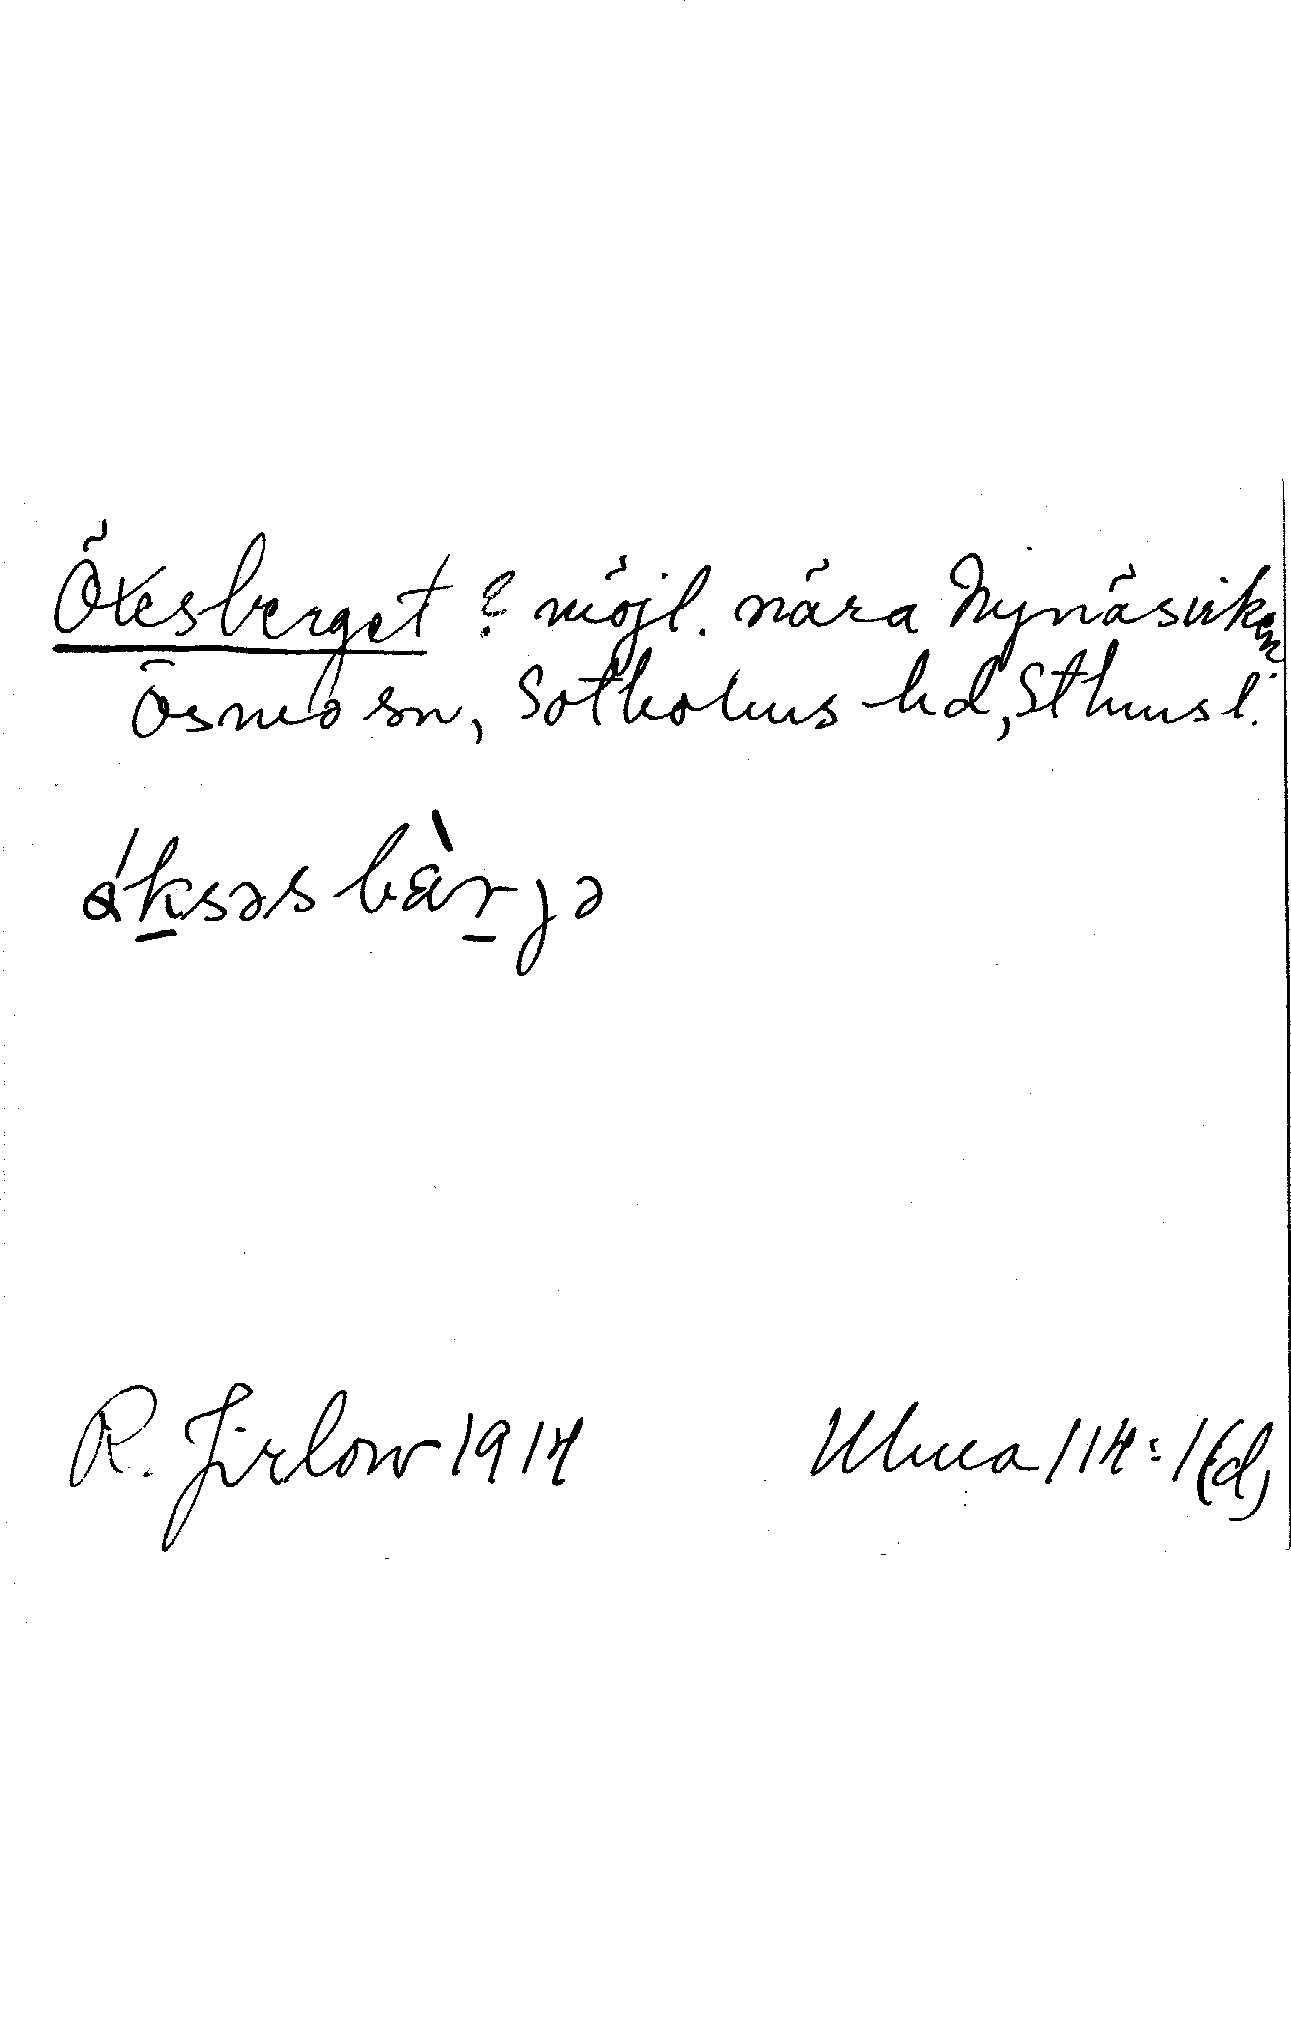 Öxesberget ? möjl. nära Nynäsviken
Ösmo sn, Sotholms hd, Sthms l.
ɷ́ksəsbὰrjə
R. Jirlow 1914
Ulma 114:1(d)